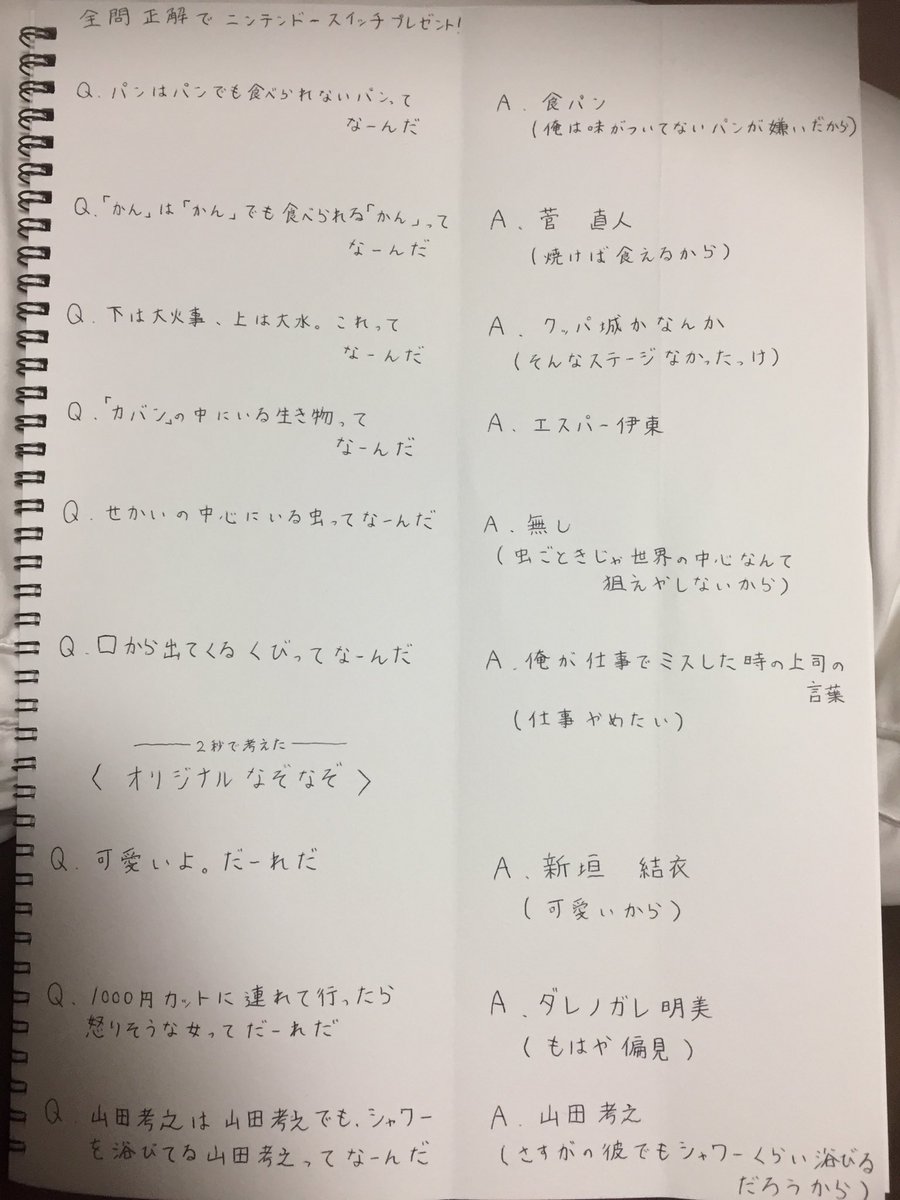 全問正解でニンテンドースイッチプレゼント!
Q.パンはパンでも食べられないパンって
なーんだ
A.食パン
(俺は味がついてないパンが嫌いだから)
Q.「かん」は「かん」でも食べられる「かん」って
なーんだ
A.菅 直人
(焼けば食えるから)
Q.下は大火事、上は大水。これって
なーんだ
A.クッパ城かなんか
(そんなステージなかったっけ)
Q.「カバン」の中にいる生き物って
なーんだ
A.エスパー伊東
Q.せかいの中心にいる虫ってなーんだ
A.無し
(虫ごときじゃ世界の中心なんて
狙えやしないから)
Q.口から出てくるくびってなーんだ
A.俺が仕事でミスした時の上司の
言葉
(仕事やめたい)
2秒で考えた
〈オリジナルなぞなぞ〉
Q.可愛いよ。だーれだ
A.新垣 結衣
(可愛いから)
Q.1000円カットに連れて行ったら
怒りそうな女ってだーれだ
A.ダレノガレ明美
(もはや偏見)
Q.山田孝之は山田孝之でも、シャワー
を浴びてる山田孝之ってなーんだ
A.山田孝之
(さすがの彼でもシャワーくらい浴びる
だろうから)